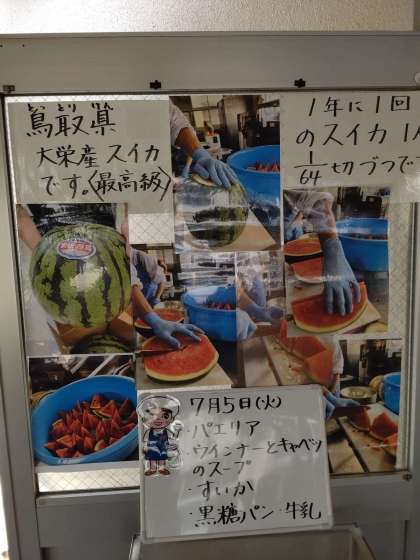 鳥取県
大栄産スイカ
です。(最高級)
1年に1回
のスイカ 1人
1/64 切づつで
7月5日(火)
・パエリア
・ウインナーとキャベツ
のスープ
・すいか
・黒糖パン・牛乳